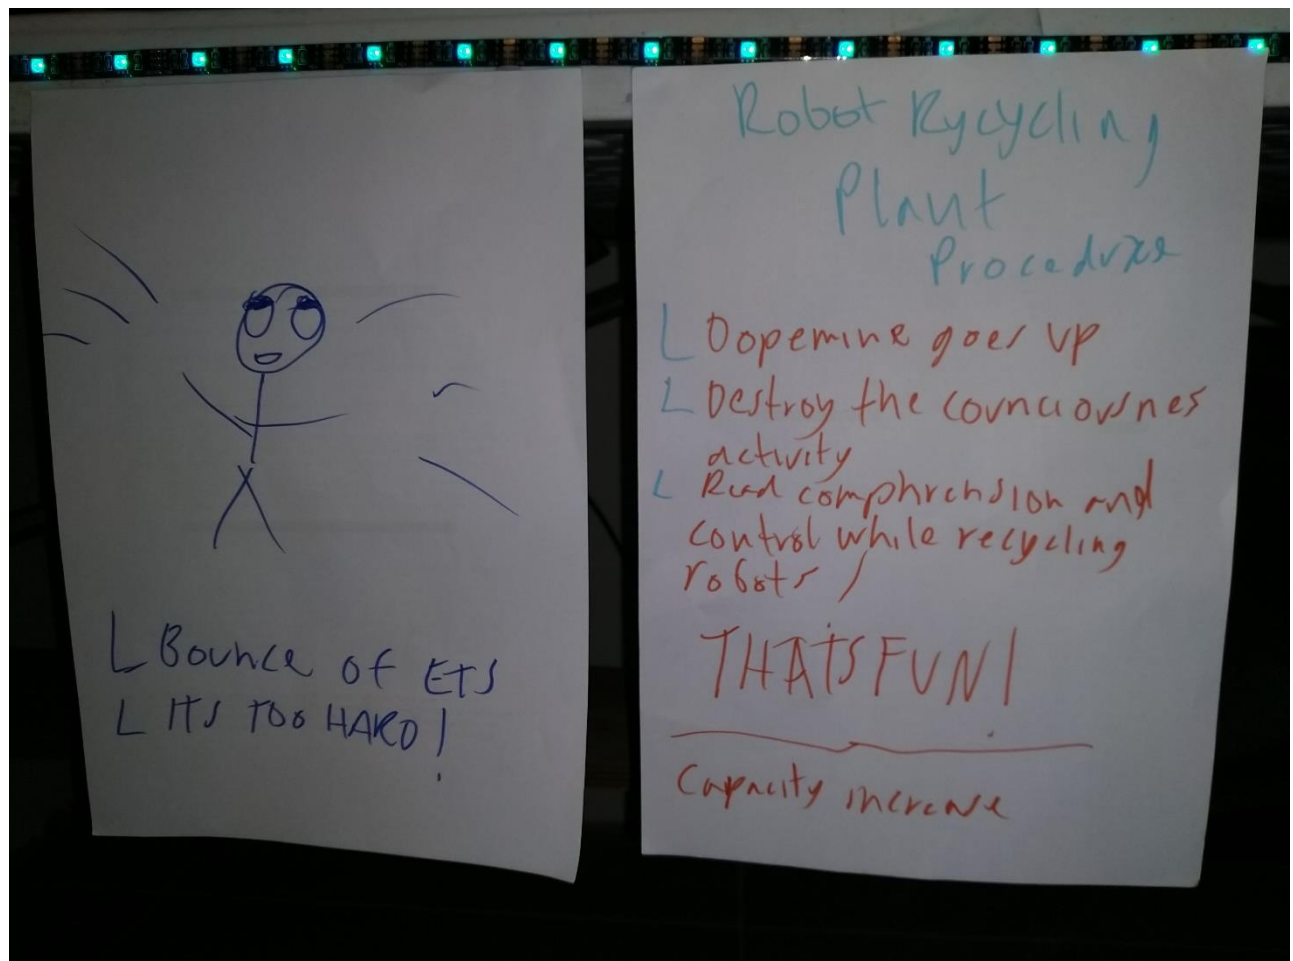 L Bounce of ETS
L ITS TOO HARD!
Robot Rycycling
Plant
Procedure
L Dopemine goes up
L Destroy the counciousnes
activity
L Read comphrension and
control while recycling
robots /
THATS FUN!
Capacity increase